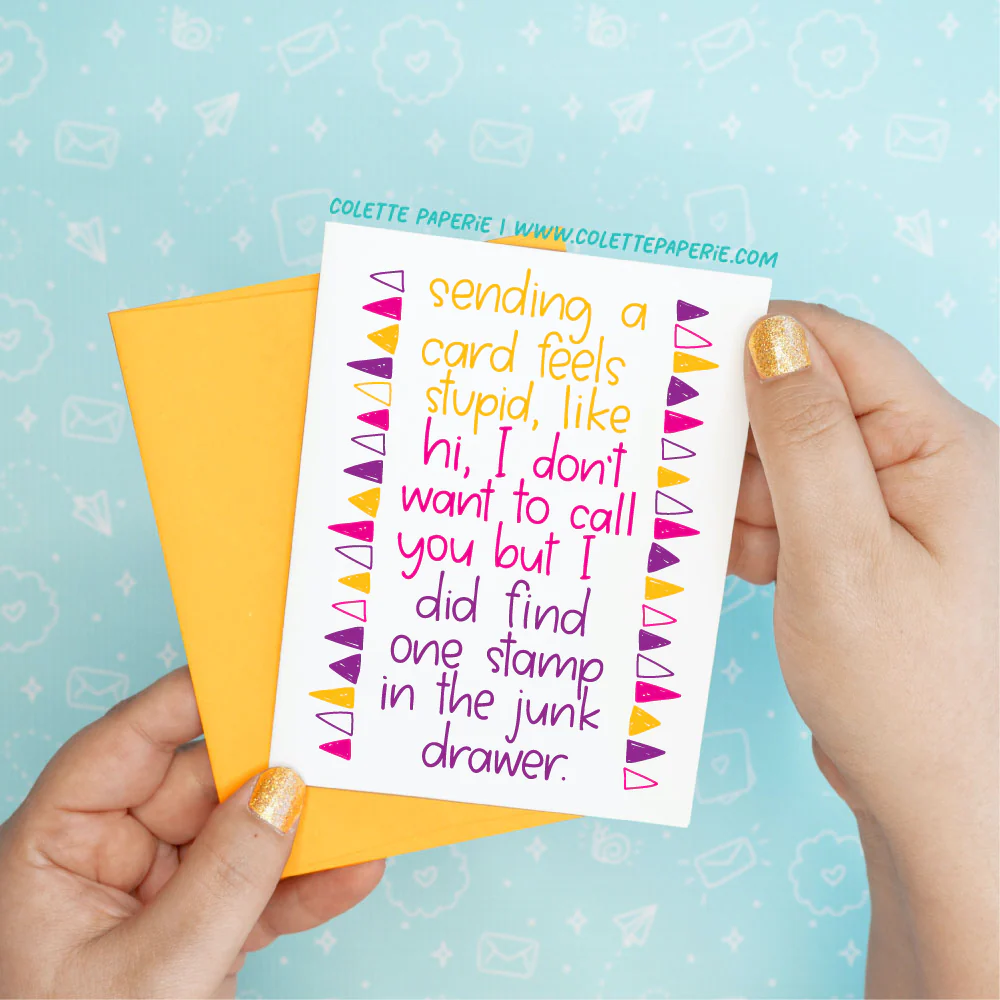 COLETTE PAPERiE | WWW.COLETTEPAPERiE.COM
sending a
card feels
stupid, like
hi, I don't
want to call
you but I
did find
one stamp
in the junk
drawer.